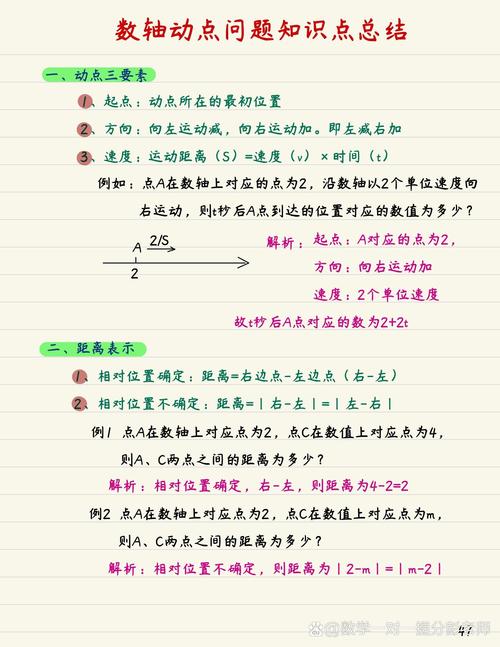 数轴动点问题知识点总结
一、动点三要素
1、起点：动点所在的最初位置
2、方向：向左运动减，向右运动加。即左减右加
3、速度：运动距离（S）=速度（v）×时间（t）
例如：点A在数轴上对应的点为2，沿数轴以2个单位速度向
右运动，则t秒后A点到达的位置对应的数值为多少？
A 2/S
2
解析：起点：A对应的点为2，
方向：向右运动加
速度：2个单位速度
故t秒后A点对应的数为2+2t
二、距离表示
1、相对位置确定：距离=右边点-左边点（右-左）
2、相对位置不确定：距离=|右-左|=|左-右|
例1 点A在数轴上对应点为2，点C在数值上对应点为4，
则A、C两点之间的距离为多少？
解析：相对位置确定，右-左，则距离为4-2=2
例2 点A在数轴上对应点为2，点C在数值上对应点为m，
则A、C两点之间的距离为多少？
解析：相对位置不确定，则距离为|2-m|=|m-2|
@数学一对一提分彭老师